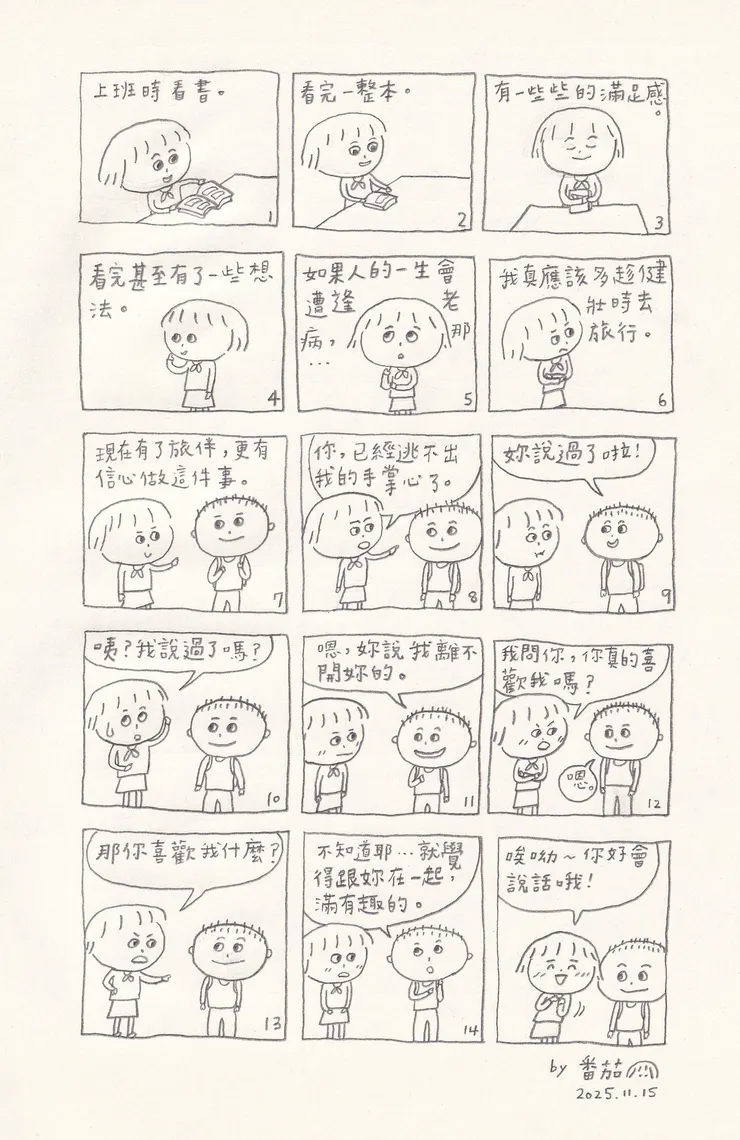 上班時看書。
1
看完一整本。
2
有一些些的滿足感。
3
看完甚至有了一些想
法。
4
如果人的一生會
遭逢老
病，那
…
5
我真應該多趁健
壯時去
旅行。
6
現在有了旅伴，更有
信心做這件事。
7
你，已經逃不出
我的手掌心了。
8
妳說過了啦！
9
咦？我說過了嗎？
10
嗯，妳說我離不
開妳的。
11
我問你，你真的喜
歡我嗎？
嗯。
12
那你喜歡我什麼？
13
不知道耶…就覺
得跟妳在一起，
滿有趣的。
14
唉呦～你好會
說話哦！
by 番茄
2025.11.15